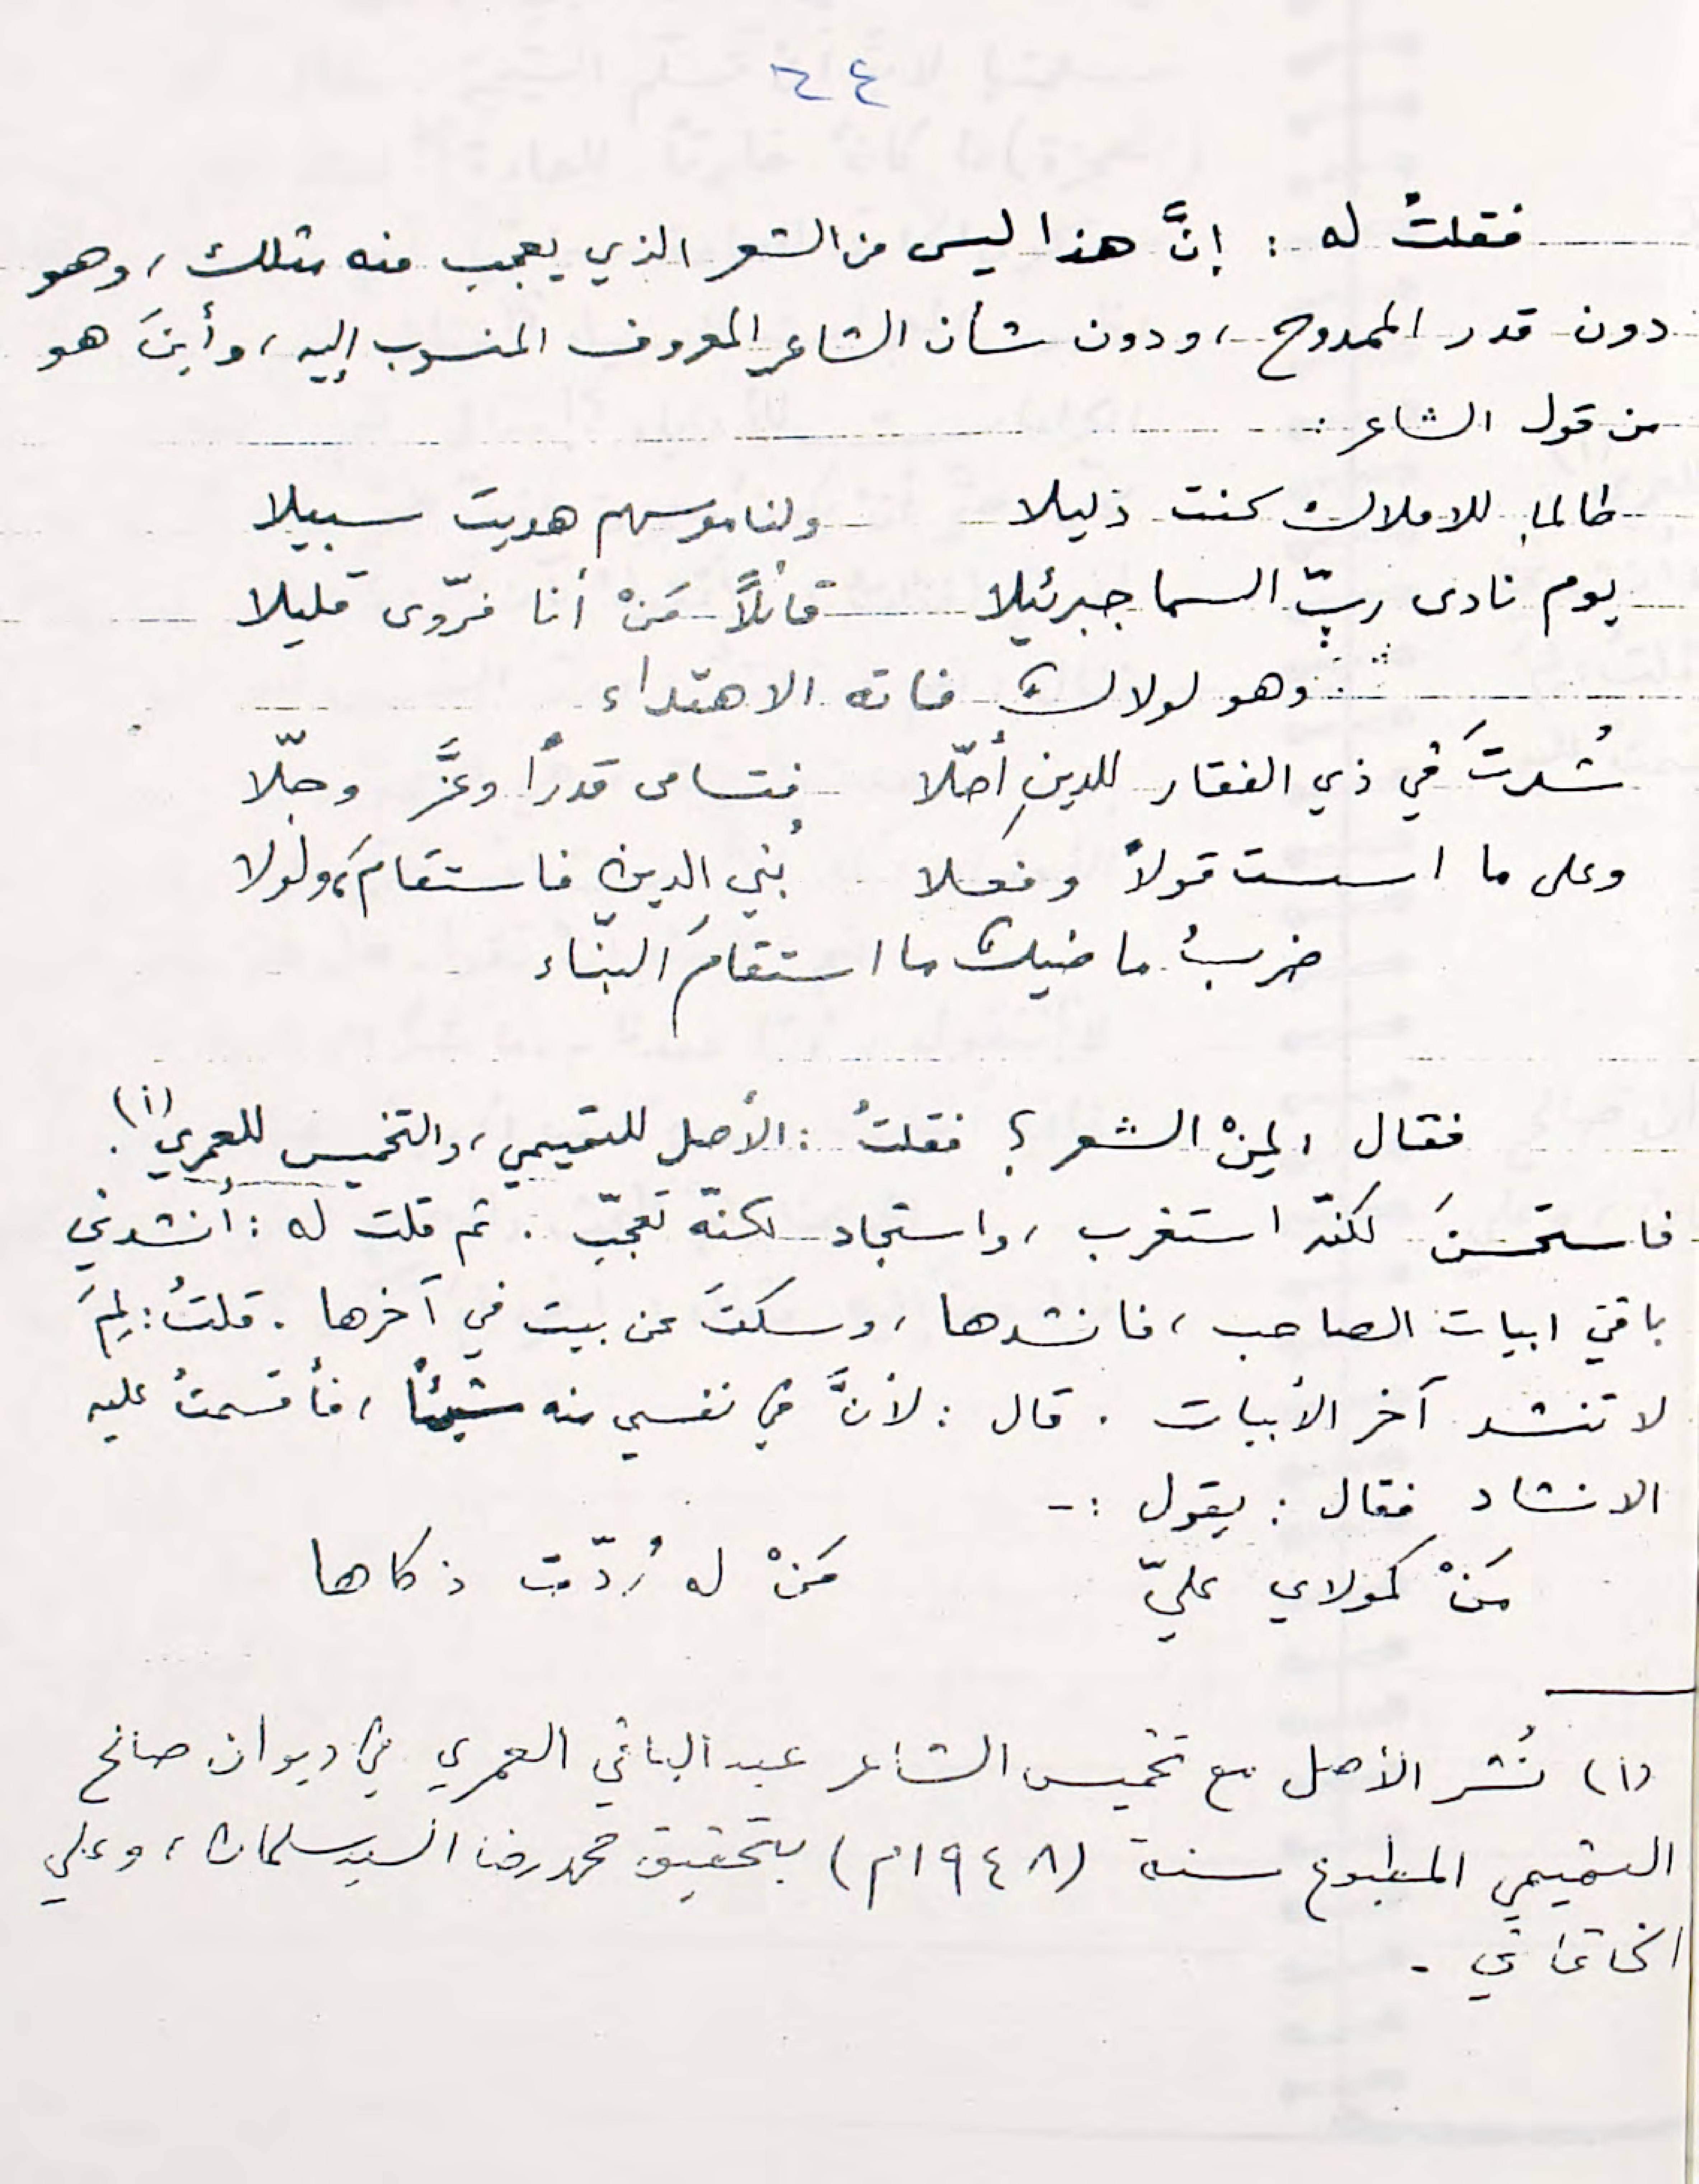 ٦٤
فقلتُ له : إنَّ هذا ليس من الشعر الذي يعجب منه مثلك ، وهو
دون قدر الممدوح ، ودون شأن الشاعر المعروف المنسوب إليه ، وأينَ هو
من قول الشاعر :
طالما للاملاك كنت دليلا ولناموسهم هديت سبيلا
يوم نادى ربّ السما جبرئيلا قائلاً مَنْ أنا فروّى قليلا
وهو لولاك فاته الاهتداء
شُدتَ في ذي الفقار للدينِ أصلا فتسامى قدراً وعزَّ وجلّا
وعلى ما اسست قولاً وفعلا بُني الدين فاستقامَ ، ولولا
ضربُ ماضيك ما استقامَ البناء
فقال : لِمنْ الشعر ؟ فقلتُ : الأصل للتميمي ، والتخميس للعمري (١) .
فاستحسنَ لكنّه استغرب ، واستجاد لكنّه تعجّب . ثم قلت له : أنشدني
باقي ابيات الصاحب ، فانشدها ، وسكتَ عن بيت في آخرها . قلتُ : لِمَ
لا تنشد آخر الأبيات . قال : لأنَّ في نفسي منه شيئاً ، فأقسمتُ عليه
الانشاد فقال : يقول :-
مَنْ كمولاي عليّ مَنْ له رُدّت ذكاها
(١) نُشر الأصل مع تخميس الشاعر عبد الباقي العمري في ديوان صالح
التميمي المطبوع سنة (١٩٤٨م) بتحقيق محمد رضا السيد سلمان ، وعلي
الخاقاني .